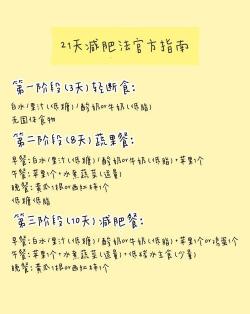 21天减肥法官方指南
第一阶段(3天)轻断食:
白水/果汁(低糖)/酸奶or牛奶(低脂)
无固体食物
第二阶段(8天)蔬果餐:
早餐:白水/果汁(低糖)/酸奶or牛奶(低脂)+苹果1个
午餐:苹果1个+水煮蔬菜(适量)
晚餐:黄瓜1根or西红柿1个
低糖低脂
第三阶段(10天)减肥餐:
早餐:白水/果汁(低糖)/酸奶or牛奶(低脂)+苹果1个or鸡蛋1个
午餐:苹果1个+水煮蔬菜(适量)+低碳水主食(少量)
晚餐:黄瓜1根or西红柿1个